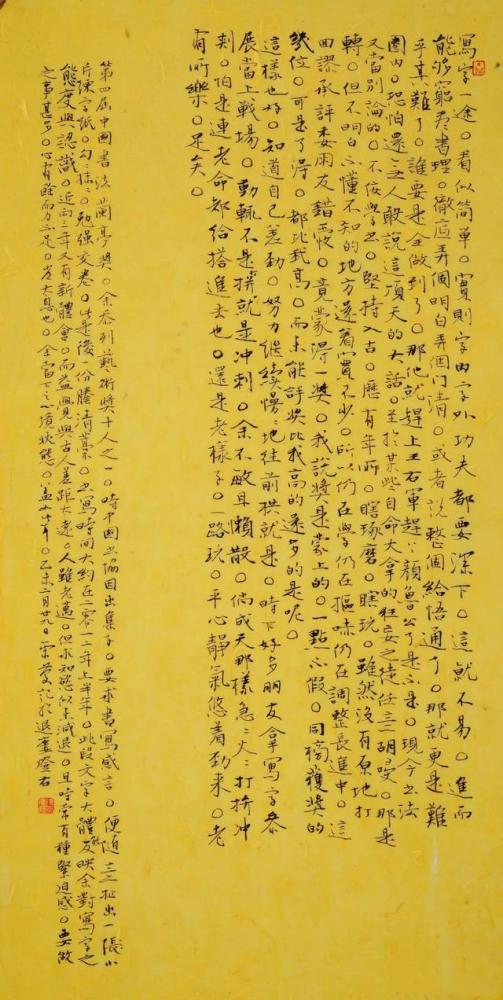 寫字一途。看似简單。實則字内字外功夫都要深下。這就不易。進而
能够窮尽書理。徹底弄個明白弄個门清。或者说整個給悟通了。那就更是難
乎其難了。誰要是全做到了。那他就趕上王右軍趕上顔魯公了是不是。現今书法
圈内。恐怕還三无人敢说這項天的大話。至於某些自命大拿的狂妄之徒任三胡叟。那是
又當别論的。不佞学书。堅持入古。歷有年所。瞎琢磨。瞎玩。雖然沒有原地打
轉。但不明白不懂不知的地方還着實不少。所以仍在学仍在摳哧仍在調整長進中。這
回謬承評委朋友錯愛。竟蒙得一奖。我説獎是蒙上的。一點不假。同榜獲奖的
幾位。可是了得。都比我高。而未能評奖比我高的還多的是呢。
這樣也好。知道自己差勁。努力继續慢慢地往前拱就是。時下好多朋友拿寫字叅
展當上戰場。動輒不是拼就是冲刺。余不敏且懒散。倘成天那樣急急火火打拚冲
刺。怕是連老命都给搭進去也。還是老樣子。一路玩。平心靜氣悠着勁来。老
有所樂。足矣。
第四届中國書法蘭亭獎。余忝列藝術獎十人之一。時中國书協因出集子。要求書寫感言。便随手扯出一張小
片绵字纸。勾抹抹勉强交卷。此是後份謄清藁。书寫時间大约在二零一二年上半年。此段文字大體反映余對寫字之
態度與認識。近兩三年又有新體會。而益覺與古人差距太遠。人雖老邁。但求知慾似未減退。且時常有種緊迫感。要做
之事甚多。心有餘而力不足。岂大息也。余當下之心境狀態。盖如此耳。乙未二月廿九日一朿斋記於退廬燈右